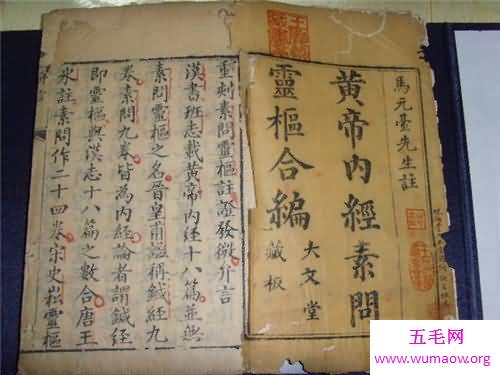 馬元臺先生註
黃帝內經素問
靈樞合編
大文堂
藏板
重刺素問靈樞註證發微弁言
漢書班志載黃帝內經十八篇並無
素問靈樞之名晉皇甫謐稱鍼經九
卷素問九卷皆為內經論者謂鍼經
即靈樞與漢志十八篇之數合唐王
氷註素問作二十四卷宋史崧靈樞
五毛网
www.wumaow.org